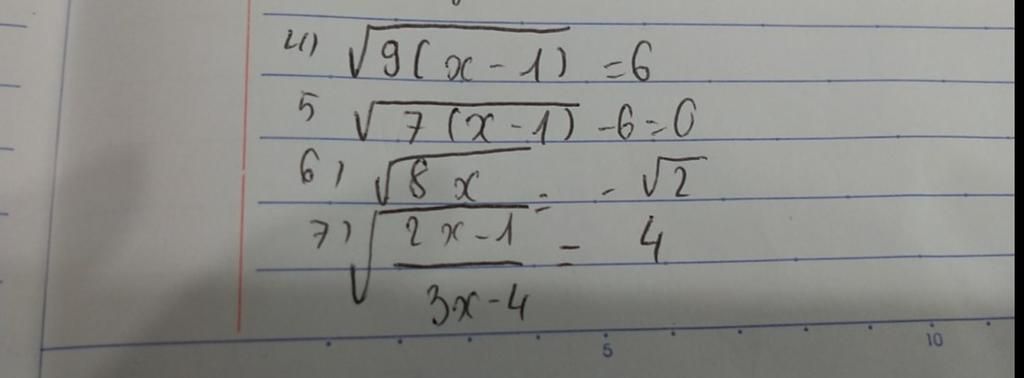 4) √9(x-1) = 6
5 √7(x-1) -6=0
6) √8x = -√2
7) √(2x-1)/(3x-4) = 4
5 10